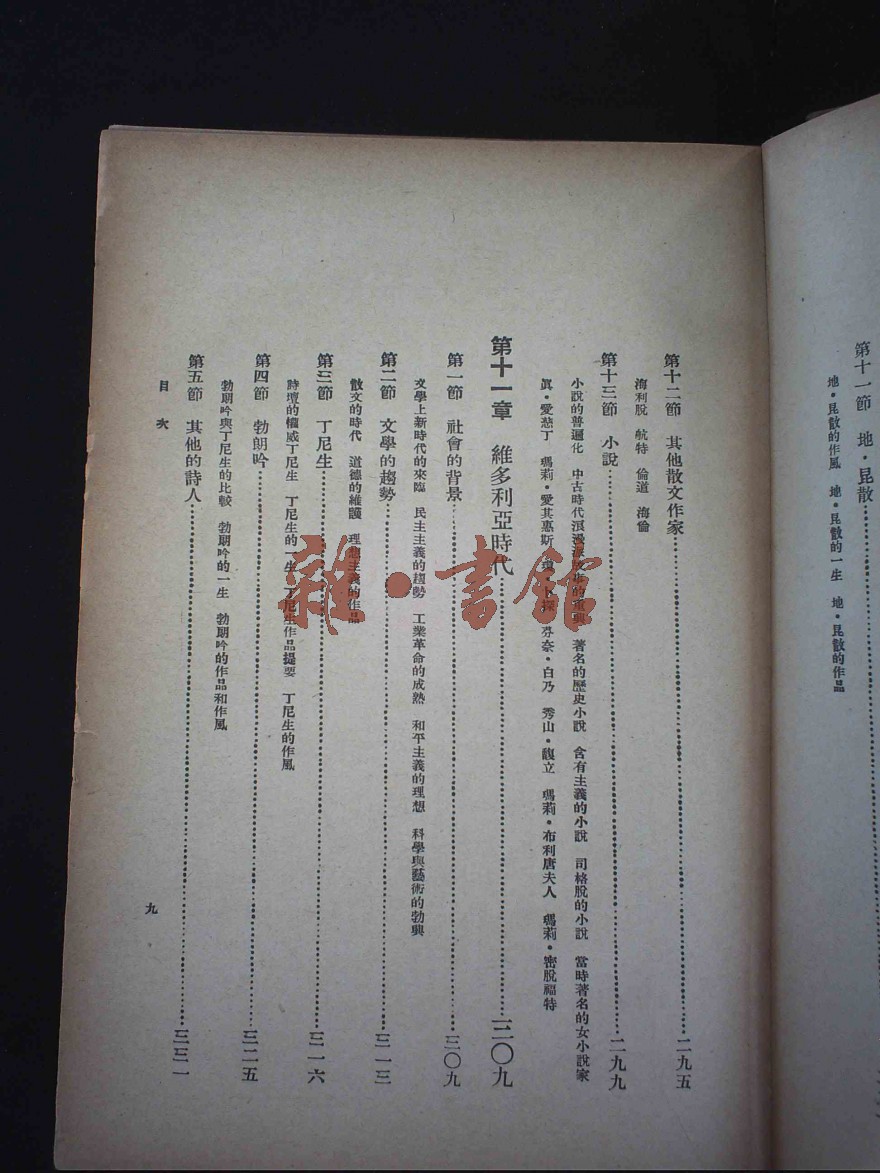 第十一節　地・昆散
地・昆散的作風　地・昆散的一生　地・昆散的作品
第十二節　其他散文作家……二九五
海利脫　航特　倫道　海倫
第十三節　小說……二九九
小說的普遍化　中古時代浪漫派故事的重興　著名的歷史小說　含有主義的小說　司格脫的小說　當時著名的女小說家
真・愛慈丁　瑪莉・愛其惠斯　芬奈・白乃　秀山・馥立　瑪莉・布利唐夫人　瑪莉・密脫福特
第十一章　維多利亞時代……三〇九
第一節　社會的背景……三〇九
文學上新時代的來臨　民主主義的趨勢　工業革命的成熟　和平主義的理想　科學與藝術的勃興
第二節　文學的趨勢……三一三
散文的時代　道德的維護　理想主義的作品
第三節　丁尼生……三一六
詩壇的權威丁尼生　丁尼生的一生　丁尼生作品提要　丁尼生的作風
第四節　勃朗吟……三二五
勃朗吟與丁尼生的比較　勃朗吟的一生　勃朗吟的作品和作風
第五節　其他的詩人……三三一
目次
九
雜・書館